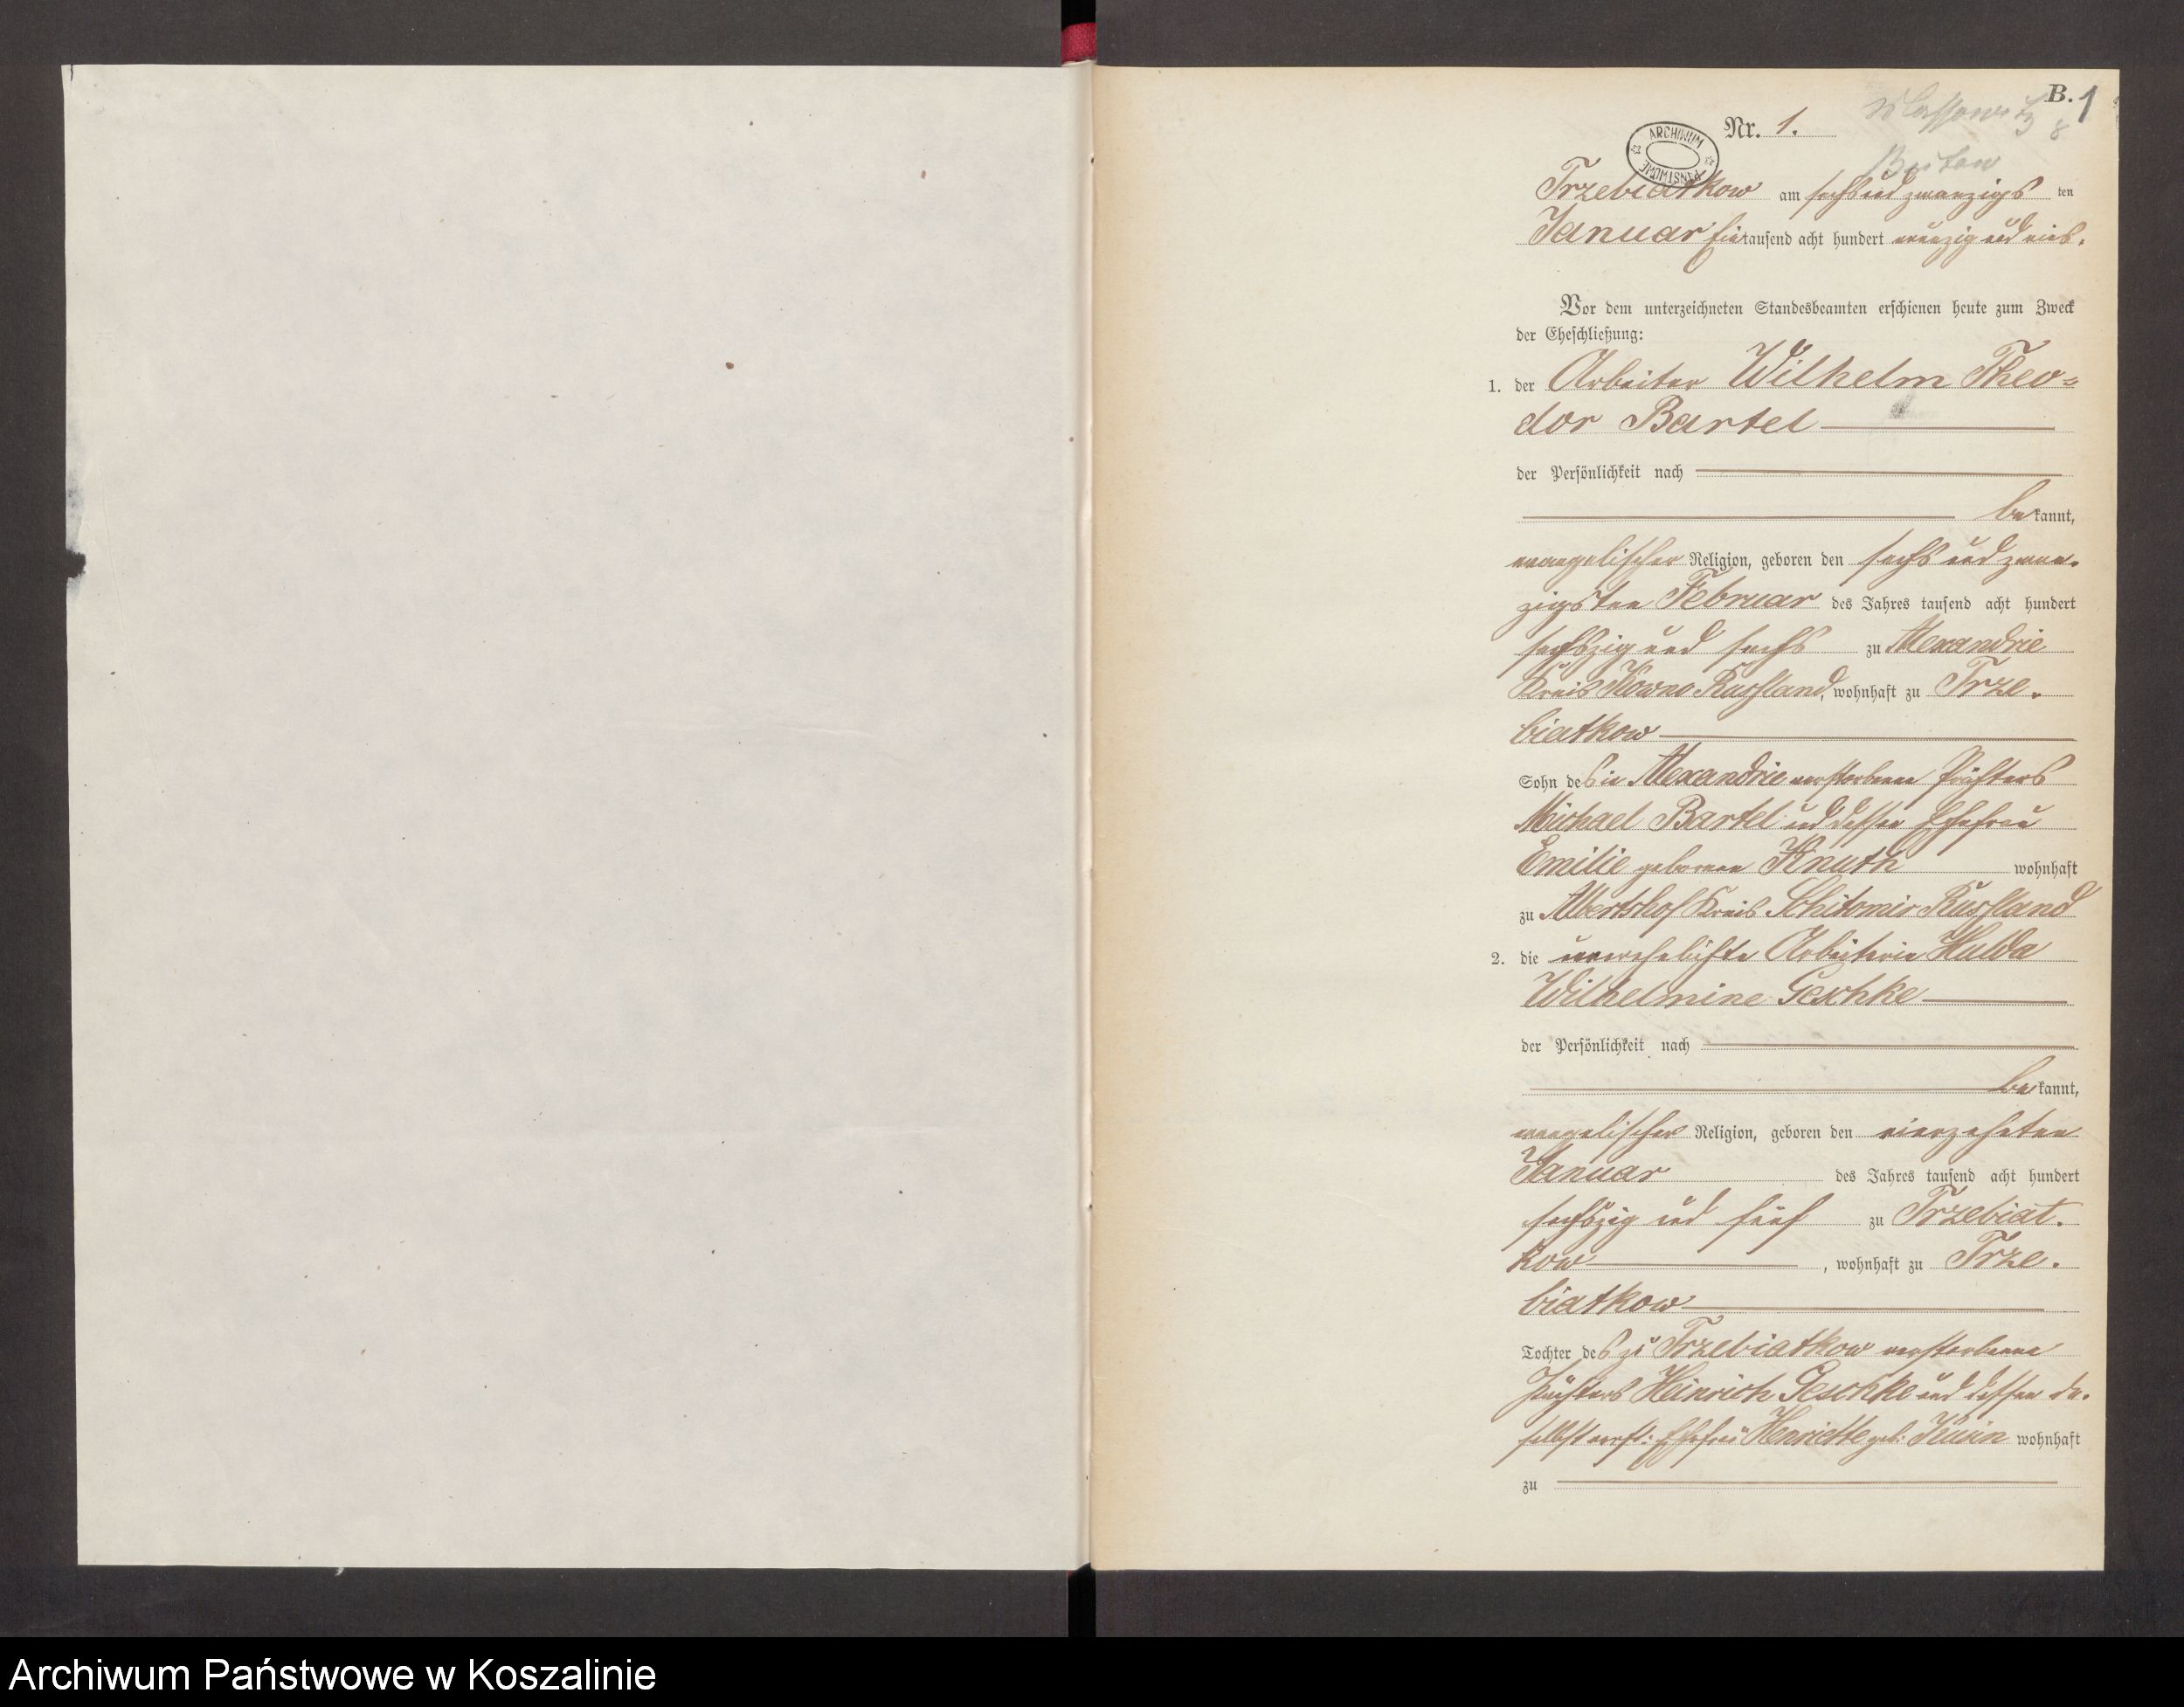 B. 1
Nr. 1.
ARCHIWUM PAŃSTWOWE
Bütow
Trzebiatkow am sechsundzwanzigs ten
Januar Eintausend acht hundert neunzig und vier.
Vor dem unterzeichneten Standesbeamten erschienen heute zum Zweck
der Eheschließung:
1. der Arbeiter Wilhelm Theo=
dor Bartel
der Persönlichkeit nach
bekannt,
evangelischer Religion, geboren den sechs und zwan-
zigsten Februar des Jahres tausend acht hundert
sechszig und sechs zu Alexandrie
Kreis Kowno Russland, wohnhaft zu Trze-
biatkow
Sohn des in Alexandrie verstorbenen Pächters
Michael Bartel und dessen Ehefrau
Emilie geborenen Knuth wohnhaft
zu Albertshof Kreis Schitomir Russland
2. die unverehelichte Arbeiterin Hulda
Wilhelmine Geschke
der Persönlichkeit nach
bekannt,
evangelischer Religion, geboren den vierzehnten
Januar des Jahres tausend acht hundert
sechszig und fünf zu Trzebiat-
kow, wohnhaft zu Trze-
biatkow
Tochter des zu Trzebiatkow verstorbenen
Pächters Heinrich Geschke und dessen da-
selbst verst: Ehefrau Henriette geb: wohnhaft
zu
Archiwum Państwowe w Koszalinie